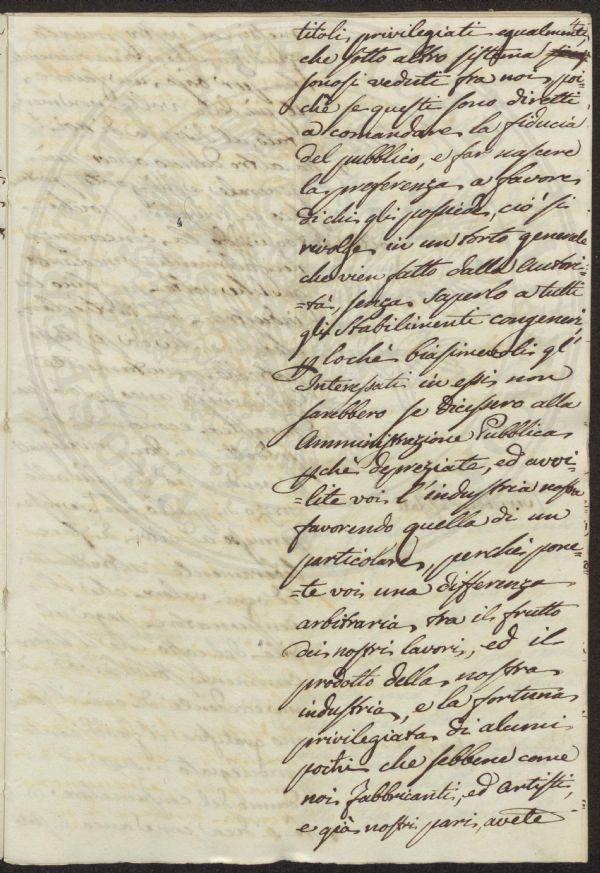 4
titoli privilegiati egualmente,
che sotto altro sistema
sonosi veduti fra noi, poi-
chè se questi sono diretti
a comandare la fiducia
del pubblico, e far nascere
la preferenza a favore
di chi gli possiede, ciò si
rivolge in un torto generale
che vien fatto dalla Autori-
=tà, senza saperlo a tutti
gli Stabilimenti congeneri,
p lochè biasimevoli gl'
Interessati in essi non
sarebbero se dicessero alla
Amministrazione Pubblica
pchè depreziate, ed avvi-
=lite voi l'industria nostra
favorendo quella di un
particolare, perchè pone-
=te voi una differenza
arbitraria tra il frutto
dei nostri lavori, ed il
prodotto della nostra
industria, e la fortuna
privilegiata di alcuni
pochi che sebbene come
noi Fabbricanti, ed Artisti,
e già nostri pari, avete